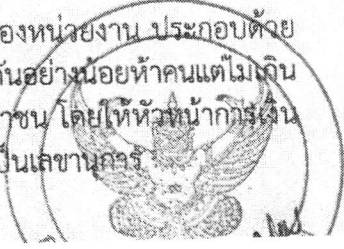 องหน่วยงาน ประกอบด้วย
กันอย่างน้อยห้าคนแต่ไม่เกิน
าชน โดยให้หัวหน้าการเงิน
เป็นเลขานุการ